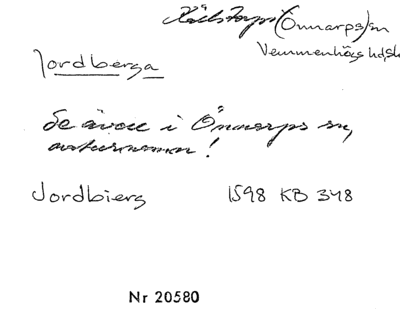 Källstorps (Önnarps) sn
Vemmenhögs hd, Sk
Jordberga
Se även i Önnarps sn,
naturnamn!
Jordbierg 1598 KB 348
Nr 20580